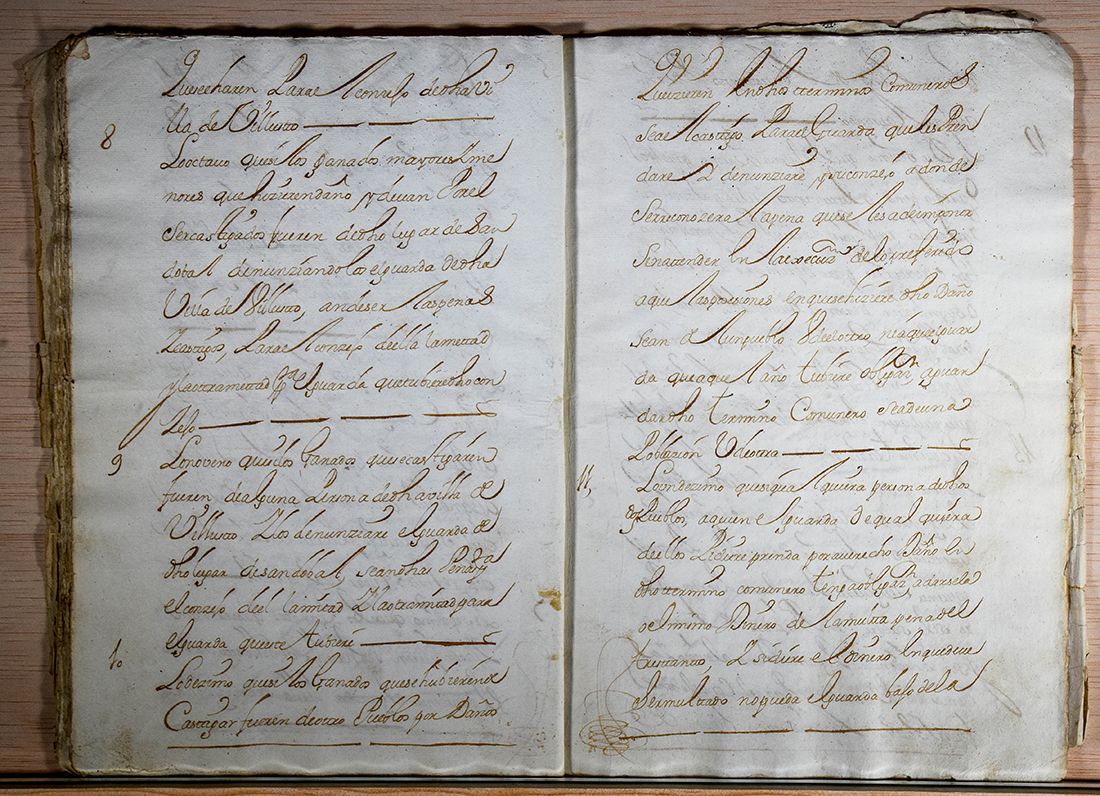 Que se echaren Para el conzejo de dha Vi
lla de Villusto
8
Lo octavo que si los ganados mayores y me
nores que hizieren daño y devan Por el
Ser castigados fueren de dho lugar de San
dobal denunziandolos el guarda de dha
Villa de Villusto, an de ser las penas
Y castigos, Para el conzejo de ella la mitad
y la otra mitad Para el guarda que tubiere dho con
zejo
9
Lo noveno que si los Ganados que se castigaren
fueren de alguna Persona de dha villa de
Villusto Y los denunziare el guarda de
dho lugar de sandobal, sea dha Pena Pa
el conzejo de el la mitad Y la otra mitad para
el guarda que este tubiere
10
Lo dezimo que si los Ganados que se hubieren de
Castigar fueren de otros Pueblos por Daños
Que hizieren En dho termino Comunero
Sea el castigo Para el guarda que les Pren
dare Y denunziare y su conzejo a donde
Se rreconozera la pena que se les a de imponer
Sin attender En la execuzn de lo rreferido
a que las posesiones en que se hiziere dho Daño
Sean de el un pueblo V de el otro ni a que el guar
da que aquel año tubiere obligazn a guar
dar dho termino Comunero sea de una
Poblazion V de otra
11,
Lo undezimo que si qualquiera persona de dhos
dos Pueblos, a quien el guarda de qualquiera
de ellos Pidiere prenda por aver echo Daño En
dho termino comunero tenga obligazn, a darsela
o el mismo Dinero de la multa pena del
tres tanto Y si diere el dinero En que deve
Ser multado no pueda el guarda bajo de la